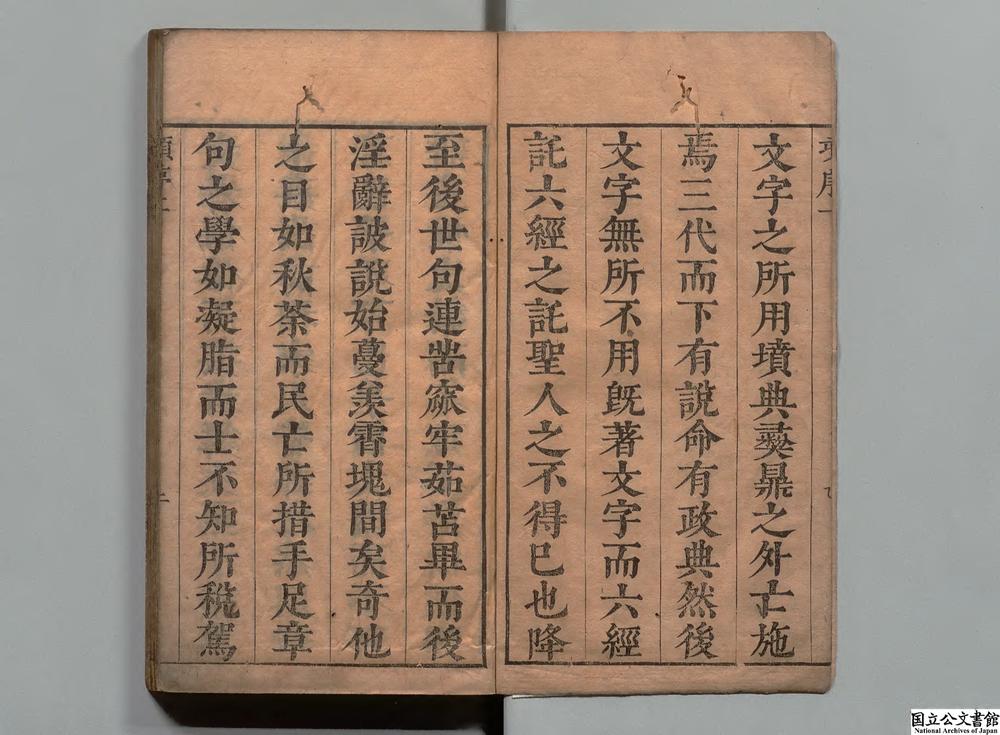 文字之所用墳典彝鼎之外亡施
焉三代而下有說命有政典然後
文字無所不用既著文字而六經
託六經之託聖人之不得已也降
至後世句連呰窳牢茹苫畢而後
淫辭詖說始蔓羨霄堁間矣奇他
之目如秋荼而民亡所措手足章
句之學如凝脂而士不知所稅駕
国立公文書館
National Archives of Japan